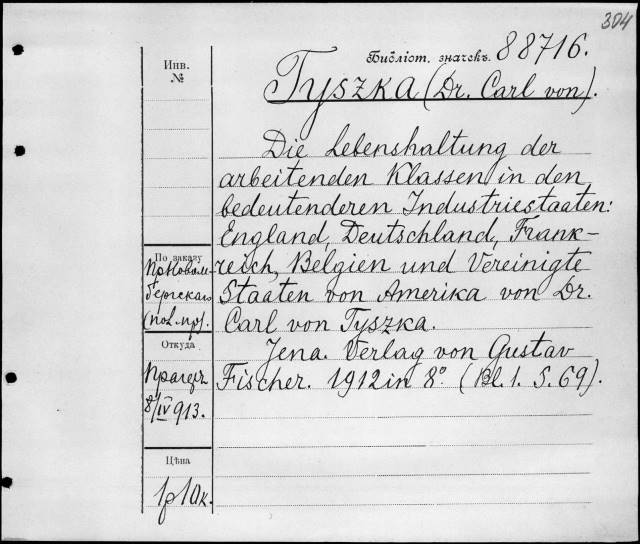 304
Библіот. значекъ. 88716.
Инв.
№
Tyszka (Dr. Carl von).
Die Lebenshaltung der
arbeitenden Klassen in den
bedeutenderen Industriestaaten:
England, Deutschland, Frank-
reich, Belgien und Vereinigte
Staaten von Amerika von Dr.
Carl von Tyszka.
Jena. Verlag von Gustav
Fischer. 1912 in 8° (Bl. 1. S. 69).
По заказу
Откуда
8/IV 913.
Цѣна
1р 10к.